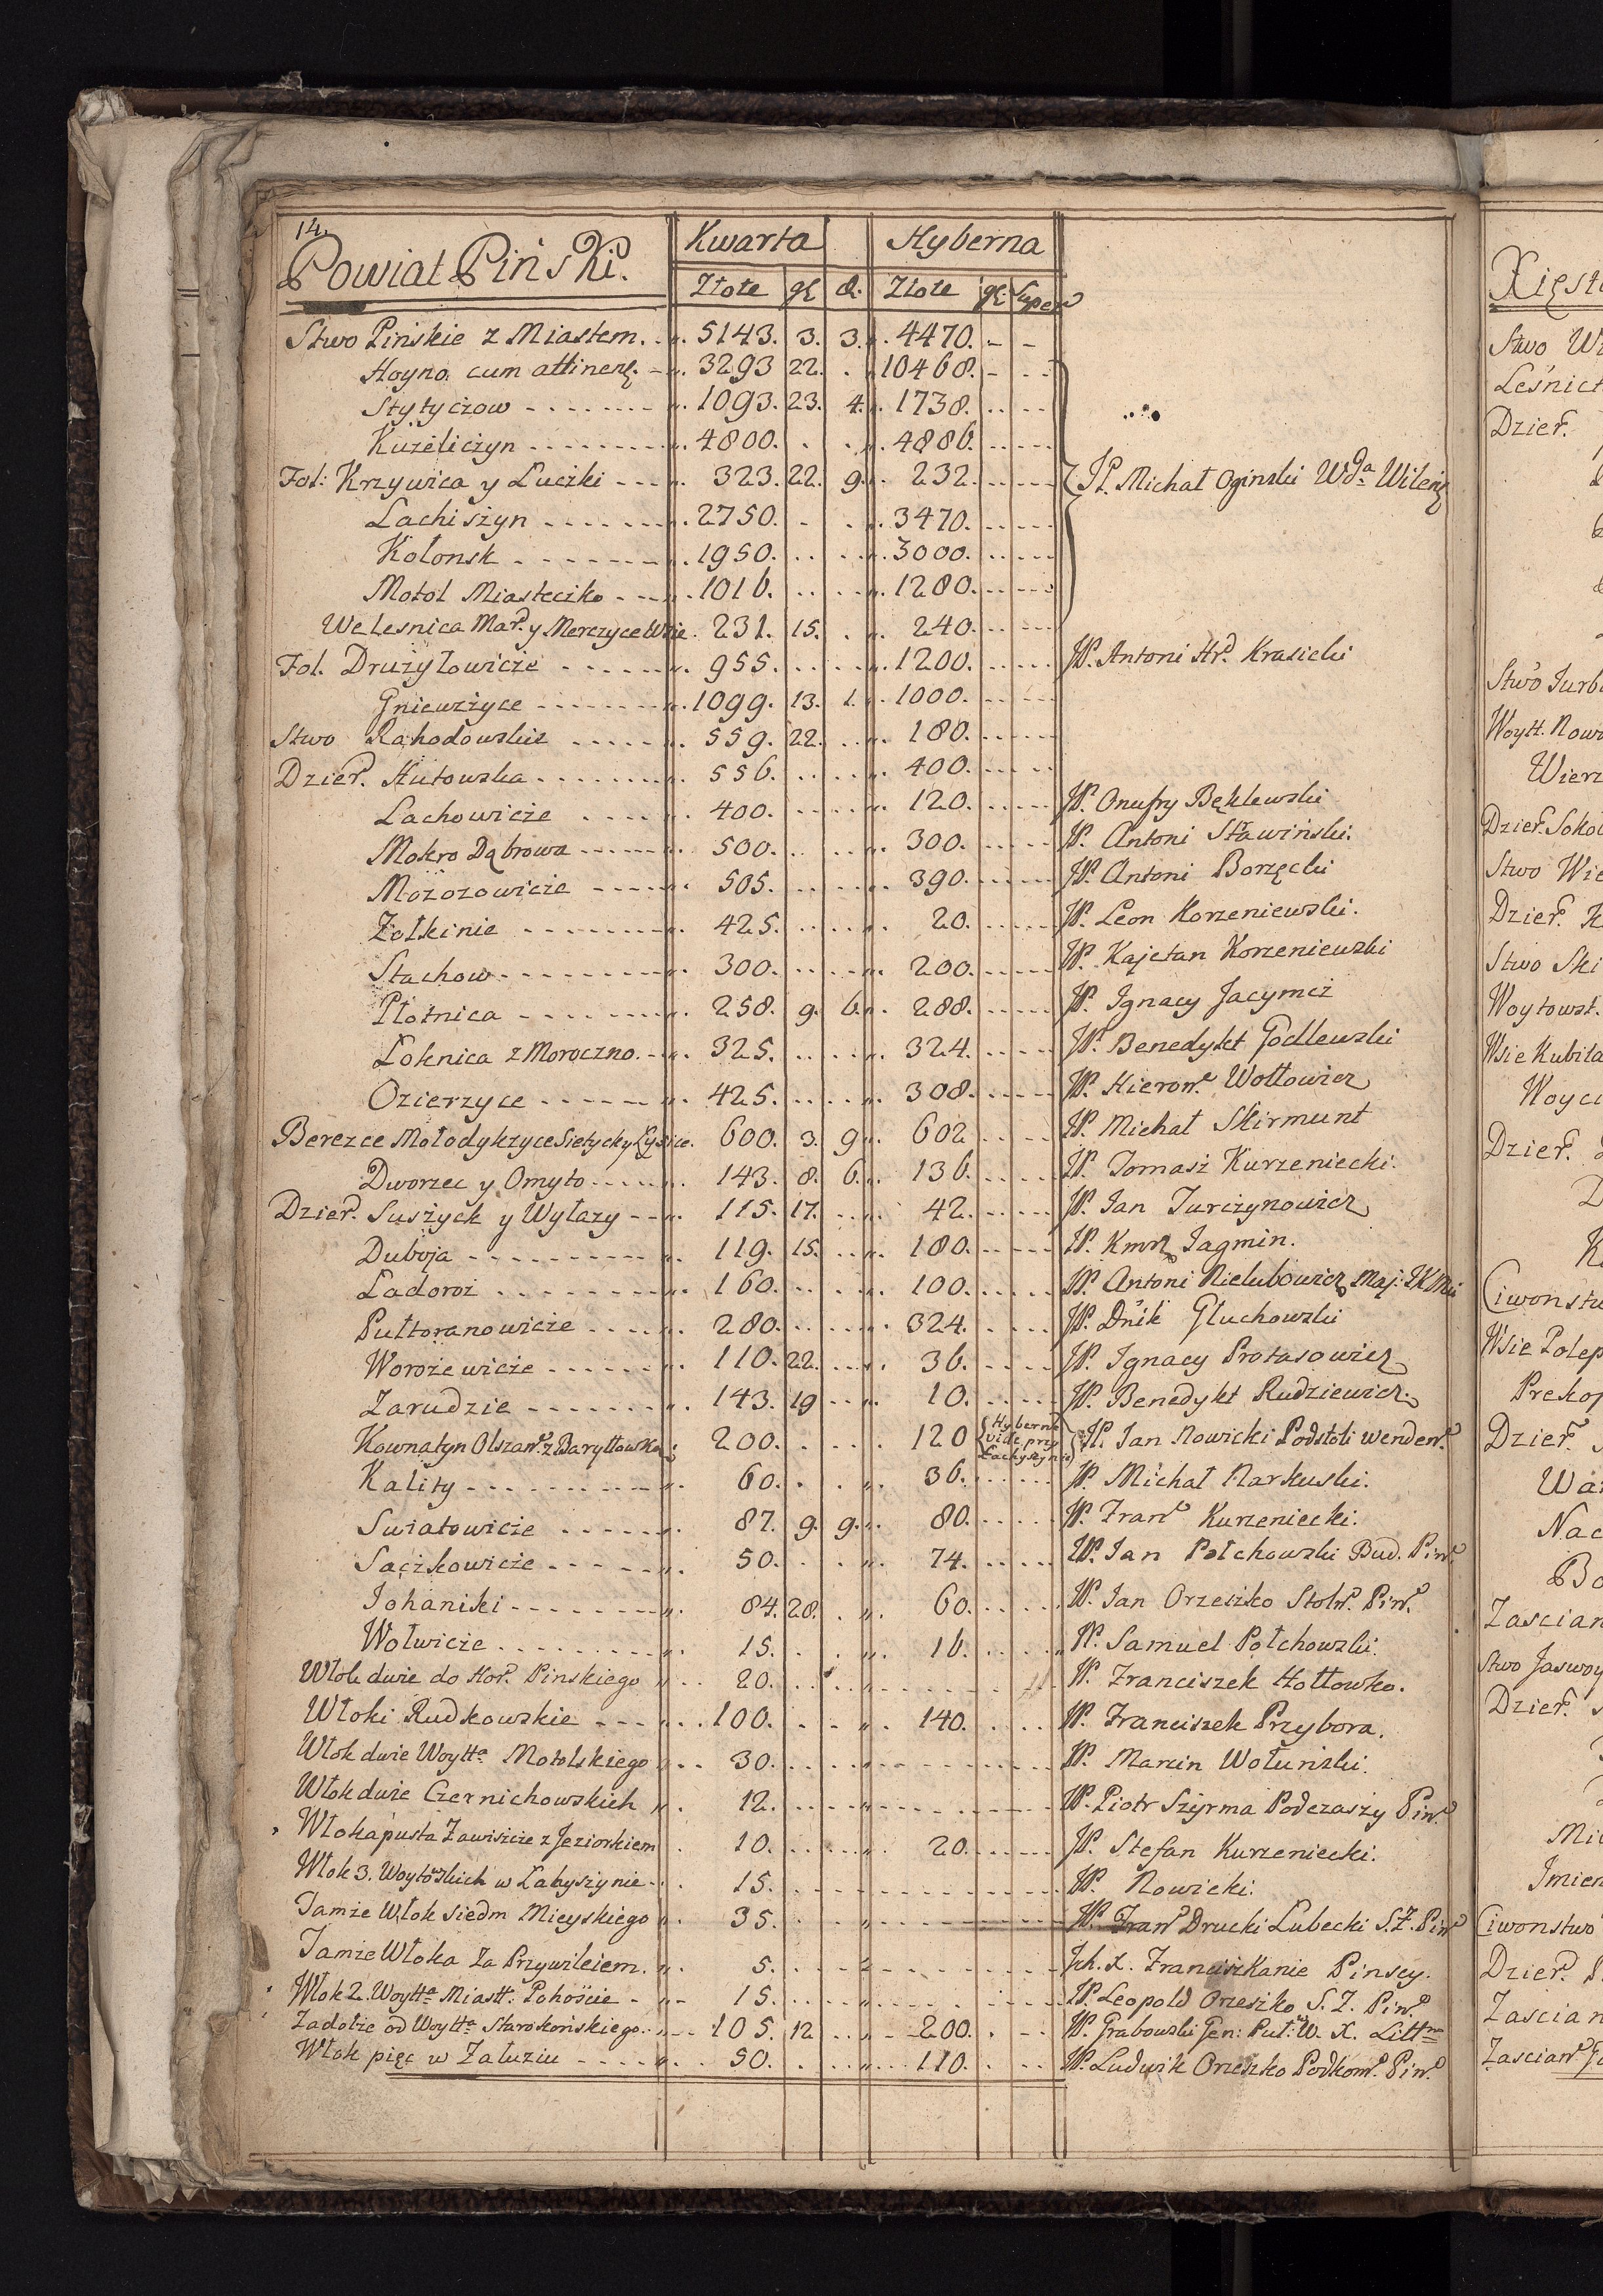 14.
Powiat Pinski. Kwarta Hyberna
Złote gr d. Złote gr Super
Stwo Pinskie z Miastem. 5143. 3. 3. 4470.
Hoyno cum attinen. 3293 22. 10468.
Stytyczow 1093. 23. 4. 1738.
Kuzeliczyn 4800. 4886.
Fol: Krzywica y Luczki 323. 22. 9. 232. JP. Michał Oginski Wda Wilen
Lachiszyn 2750. 3470.
Kołonsk 1950. 3000.
Motol Miasteczko 1016. 1280.
Welesnica Mar. y Merczyce Wsie. 231. 15. 240.
Fol. Drużyłowicze 955. 1200. JP. Antoni Hr. Krasicki
Gniewżyce 1099. 13. 1. 1000.
Stwo Rahodowskie 559. 22. 180.
Dzier. Hutowska 556. 400.
Lachowicze 400. 120. JP. Onufry Bęklewski
Mokro Dąbrowa 500. 300. JP. Antoni Sławiński.
Mozozowicze 505. 390. JP. Antoni Borzęcki
Żołkinie 425. 20. JP. Leon Korzeniewski.
Stachow 300. 200. JP. Kajetan Korzeniewski
Płotnica 258. 9. 6. 288. JP. Ignacy Jacynicz
Loknica z Moroczno. 325. 324. JP. Benedykt Godlewski
Ozierzyce 425. 308. JP. Hieron. Wołłowicz
Berezce Mołodykzyce Sietycky Łysice. 600. 3. 9. 602 JP. Michał Skirmunt
Dworzec y Omyto 143. 8. 6. 136. JP. Tomasz Kurzeniecki.
Dzier. Suszyck y Wyłazy 115. 17. 42. JP. Jan Turczynowicz
Duboja 119. 15. 180. JP. Kmr Jagmin.
Ladoroż 160. 100. JP. Antoni Nielubowicz Maj: JKMci
Pułtoranowicze 280. 324. JP. Dnik Głuchowski
Worożewicze 110. 22. 36. JP. Ignacy Protasowicz
Zarudzie 143. 19 10. JP. Benedykt Rudziewicz.
Kownatyn Olszan. z Baryttowka 200. 120 Hyberna vide przy Lachyszynie JP. Jan Nowicki Podstoli wenden.
Kality 60. 36. JP. Michał Narkuski.
Swiatowicze 87. 9. 9. 80. JP. Fran. Kurzeniecki.
Saczkowicze 50. 74. JP. Jan Połchowski Bud. Pin.
Johaniki 84. 28. 60. JP. Jan Orzeszko Stoln. Pin.
Wolwicze 15. 16. JP. Samuel Połchowski.
Włok dwie do Hor. Pinskiego 20. JP. Franciszek Hołłowko.
Włoki Rudkowskie 100. 140. JP. Franciszek Przybora.
Włok dwie Woytta Motolskiego 30. JP. Marcin Wołunski.
Włok dwie Czernichowskich 12. JP. Piotr Szyrma Podczaszy Pin.
Włoka pusta Zawiszcze z Jeziorkiem 10. 20. JP. Stefan Kurzeniecki.
Włok 3. Woytowskich w Łabyszynie 15. JP. Nowicki.
Tamże Włok siedm Mieyskiego 35. JP. Fran. Drucki Lubecki S.Z. Pin
Tamże Włoka Za Przywileiem. 5. Jch. X. Franciszkanie Pinscy.
Włok 2. Woytta Miastt. Pohoście 15. JP. Leopold Orzeszko S. Z. Pin.
Zadołże od Woytta Starokońskiego. 105. 12 200. JP. Grabowski Gen: Puł: W. X. Litt
Włok pięć w Załuziu 50. 110. JP. Ludwik Orzeszko Podkom. Pin.
Stwo
Leśnict
Dzier.
Stwo Jurb
Woytt. Now
Wierz
Dzier. Sokol
Stwo Wie
Dzier.
Stwo Ski
Woytowst.
Wsie Kubila
Woyci
Dzier.
Ciwonstw
Wsie Polep
Prekop
Dzier.
War
Nac
Bo
Zascian
Stwo Jaswoy
Dzier.
Imien
Ciwonstwo
Dzier.
Zascian
Zascian